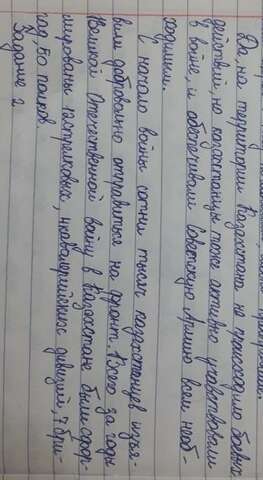 Да, на территории Казахстана не происходило боевых
действий, но казахстанцы тоже активно учавствовали
в войне, и обеспечивали Советскую Армию всем необ-
ходимым.
В начало войны сотни тысяч казахстанцев изъя-
вили добровольно отправиться на фронт. Всего за годы
Великой Отечественной войну в Казахстане были сфор-
мированы стрелковых, кавалерийских дивизий, 7 бри-
гад, 50 полков.
Задание 2